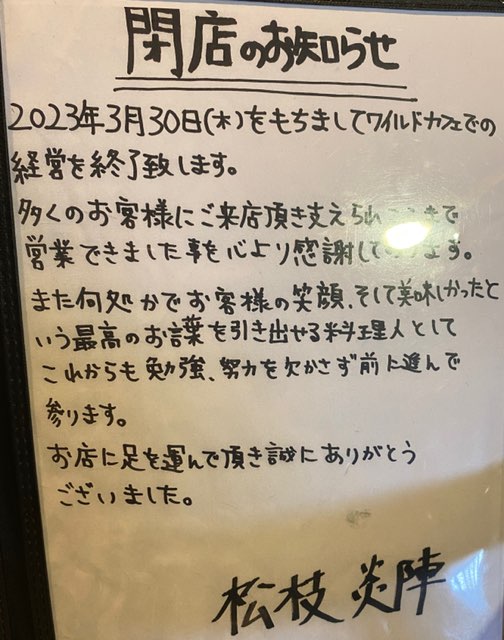 閉店のお知らせ
2023年3月30日(木)をもちましてワイルドカフェでの
経営を終了致します。
多くのお客様にご来店頂き支えられここまで
営業できました事を心より感謝しております。
また何処かでお客様の笑顔、そして美味しかったと
いう最高のお言葉を引き出せる料理人として
これからも勉強、努力を欠かさず前に進んで
参ります。
お店に足を運んで頂き誠にありがとう
ございました。
松枝 炎陣